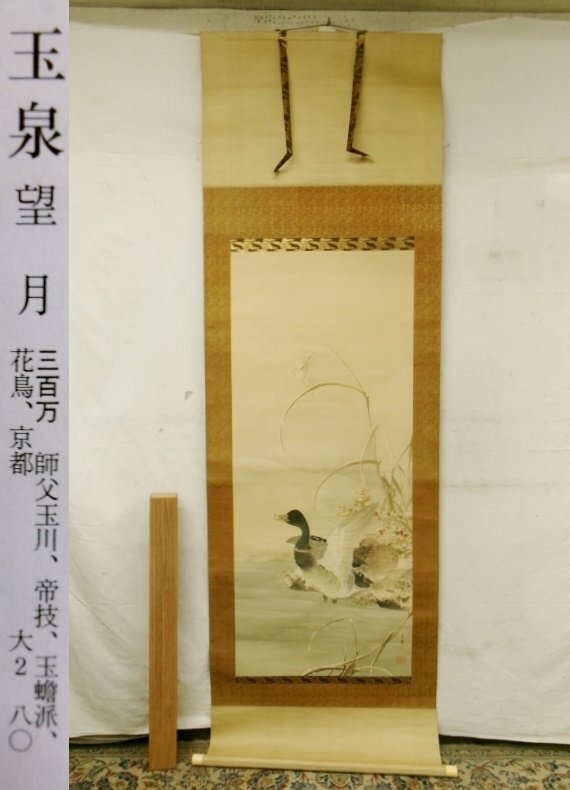 玉泉 望月
三百万 師父玉川、帝技、玉蟾派、
花鳥、京都 大2 八〇